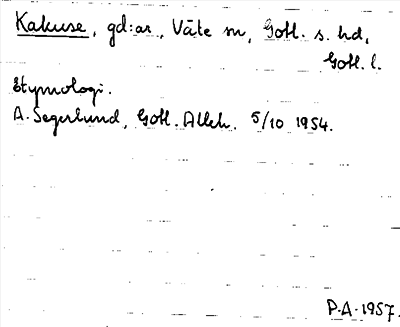 Kakuse, gd:ar, Väte sn, Gotl. s. hd,
Gotl. l.
Etymologi.
A. Segerlund, Gotl. Alleh. 5/10 1954.
P.A. 1957.